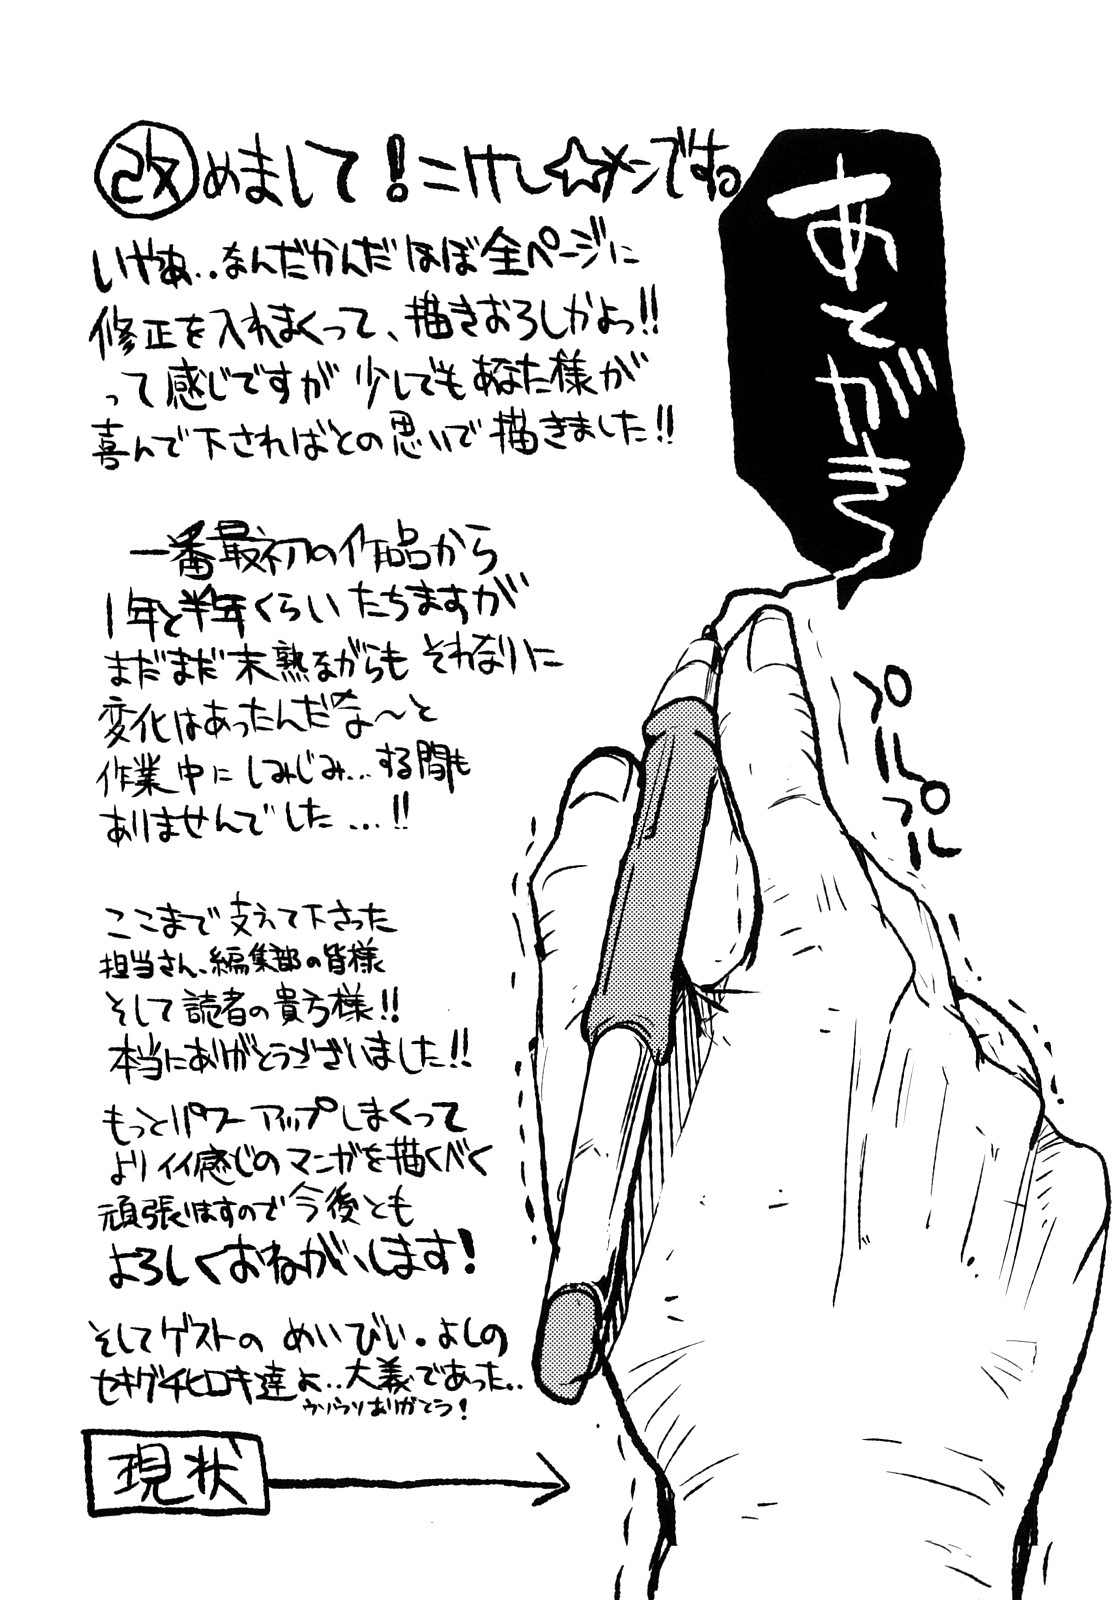 あとがき
改めまして！こけし☆メンです。
いやぁ..なんだかんだほぼ全ページに
修正を入れまくって、描きおろしかよっ!!
って感じですが少しでもあなた様が
喜んで下さればとの思いで描きました!!
一番最初の作品から
1年と半年くらいたちますが
まだまだ未熟ながらもそれなりに
変化はあったんだなぁ〜と
作業中にしみじみ...する間も
ありませんでした...!!
ここまで支えて下さった
担当さん、編集部の皆様
そして読者の貴方様!!
本当にありがとうございました!!
もっとパワーアップしまくって
よりイイ感じのマンガを描くべく
頑張りますので今後とも
よろしくおねがいします!
そしてゲストの めいびい・よしの
セキグチヒロキ達よ..大義であった..
ウソウソありがとう!
現状
プルプル